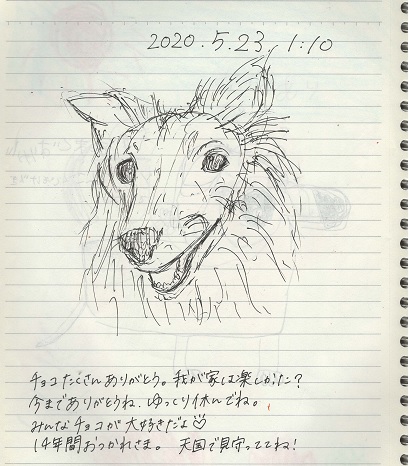 2020.5.23. 1:10
チョコたくさんありがとう。我が家は楽しかった?
今までありがとうね、ゆっくり休んでね。
みんなチョコが大好きだよ♡
14年間おつかれさま。 天国で見守っててね!